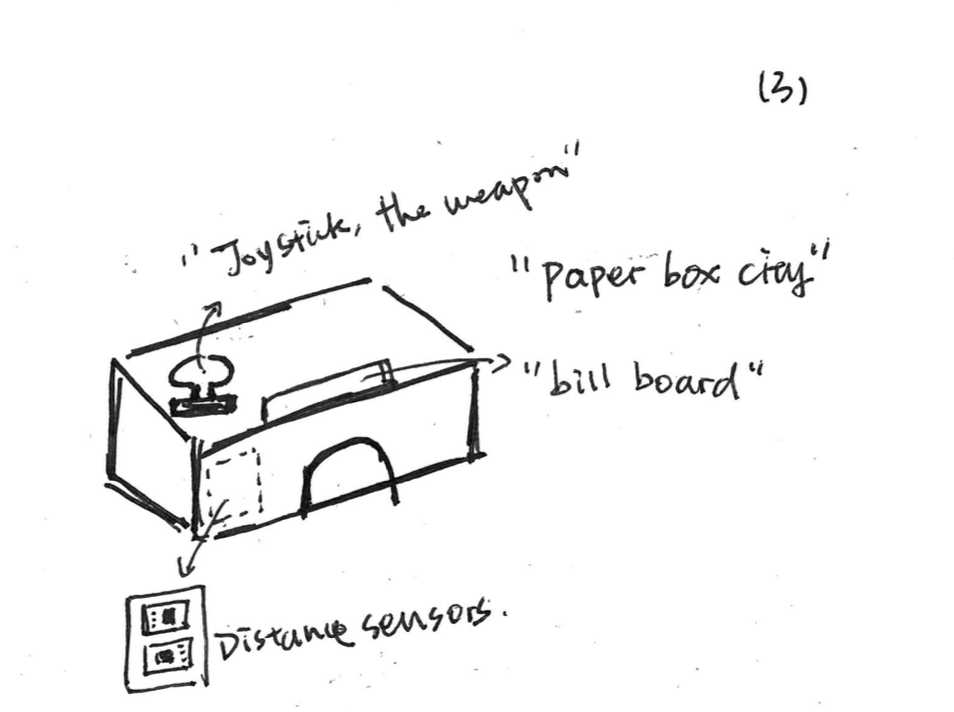 (3)
"Joystick, the weapon"
"paper box city"
"bill board"
Distance sensors.